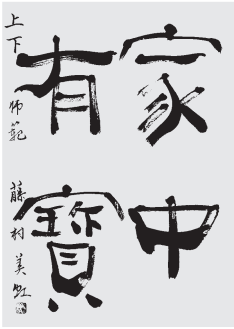 家中
有寳
上下 师範 藤村美虹